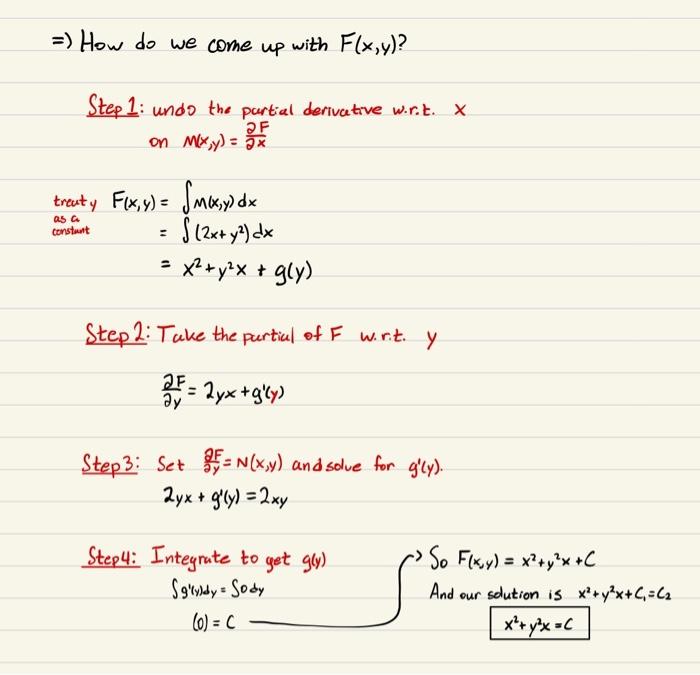 => How do we come up with F(x,y)?
Step 1: undo the partial derivative w.r.t. x
on M(x,y) = ∂F/∂x
treat y as a constant
F(x,y) = ∫M(x,y)dx
= ∫(2x+y²)dx
= x²+y²x + g(y)
Step 2: Take the partial of F w.r.t. y
∂F/∂y = 2yx+g'(y)
Step 3: Set ∂F/∂y = N(x,y) and solve for g'(y).
2yx + g'(y) = 2xy
Step 4: Integrate to get g(y)
∫g'(y)dy = ∫0dy
(0) = C
→ So F(x,y) = x²+y²x +C
And our solution is x²+y²x+C₁=C₂
x²+y²x =C